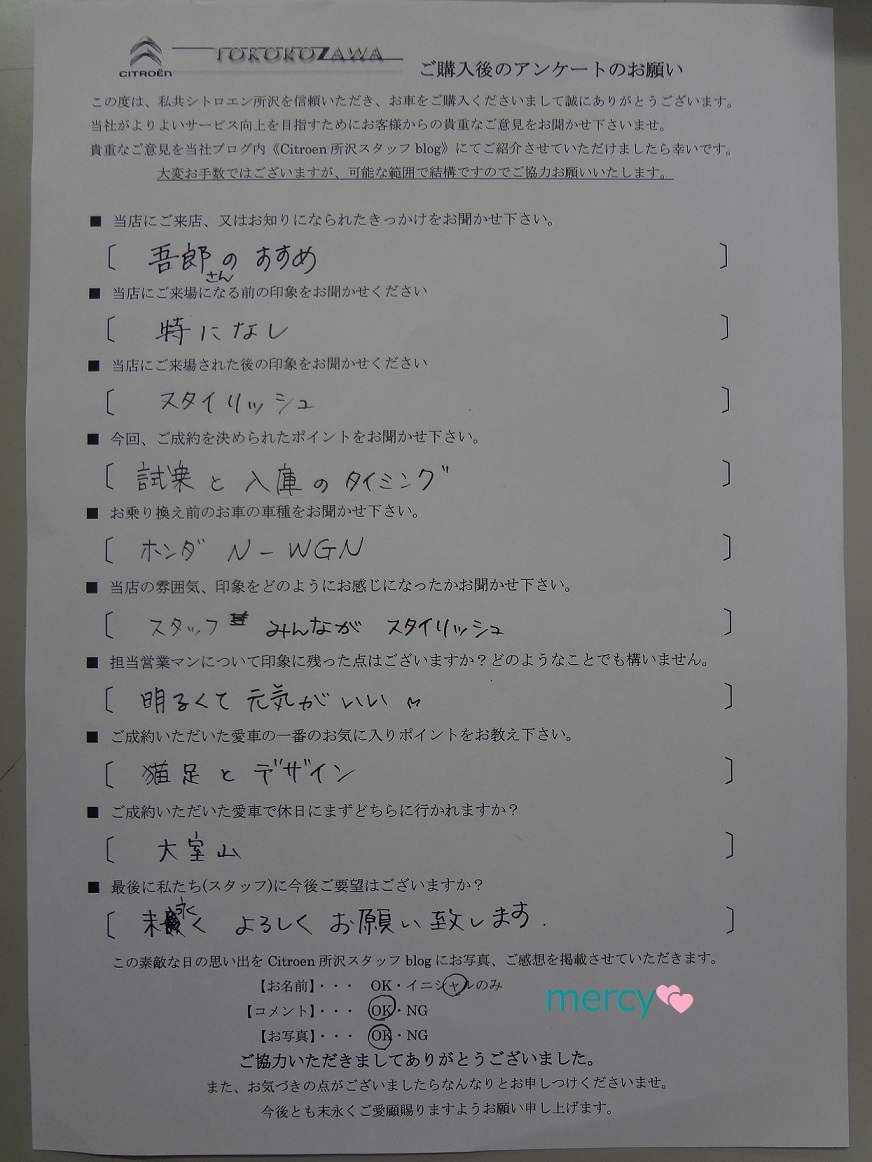 CITROËN
TOKOROZAWA
ご購入後のアンケートのお願い
この度は、私共シトロエン所沢を信頼いただき、お車をご購入くださいまして誠にありがとうございます。
当社がよりよいサービス向上を目指すためにお客様からの貴重なご意見をお聞かせ下さいませ。
貴重なご意見を当社ブログ内《Citroen 所沢スタッフ blog》にてご紹介させていただけましたら幸いです。
大変お手数ではございますが、可能な範囲で結構ですのでご協力お願いいたします。
■ 当店にご来店、又はお知りになられたきっかけをお聞かせ下さい。
〔 吾郎さんのおすすめ 〕
■ 当店にご来場になる前の印象をお聞かせください
〔 特になし 〕
■ 当店にご来場された後の印象をお聞かせください
〔 スタイリッシュ 〕
■ 今回、ご成約を決められたポイントをお聞かせ下さい。
〔 試乗と入庫のタイミング 〕
■ お乗り換え前のお車の車種をお聞かせ下さい。
〔 ホンダ N-WGN 〕
■ 当店の雰囲気、印象をどのようにお感じになったかお聞かせ下さい。
〔 スタッフ みんなが スタイリッシュ 〕
■ 担当営業マンについて印象に残った点はございますか？どのようなことでも構いません。
〔 明るくて元気がいい 〕
■ ご成約いただいた愛車の一番のお気に入りポイントをお教え下さい。
〔 猫足とデザイン 〕
■ ご成約いただいた愛車で休日にまずどちらに行かれますか？
〔 大室山 〕
■ 最後に私たち(スタッフ)に今後ご要望はございますか？
〔 末永く よろしく お願い致します. 〕
この素敵な日の思い出を Citroen 所沢スタッフ blog にお写真、ご感想を掲載させていただきます。
【お名前】・・・ OK・イニシャルのみ
【コメント】・・・ OK・NG
【お写真】・・・ OK・NG
mercy
ご協力いただきましてありがとうございました。
また、お気づきの点がございましたらなんなりとお申しつけくださいませ。
今後とも末永くご愛顧賜りますようお願い申し上げます。